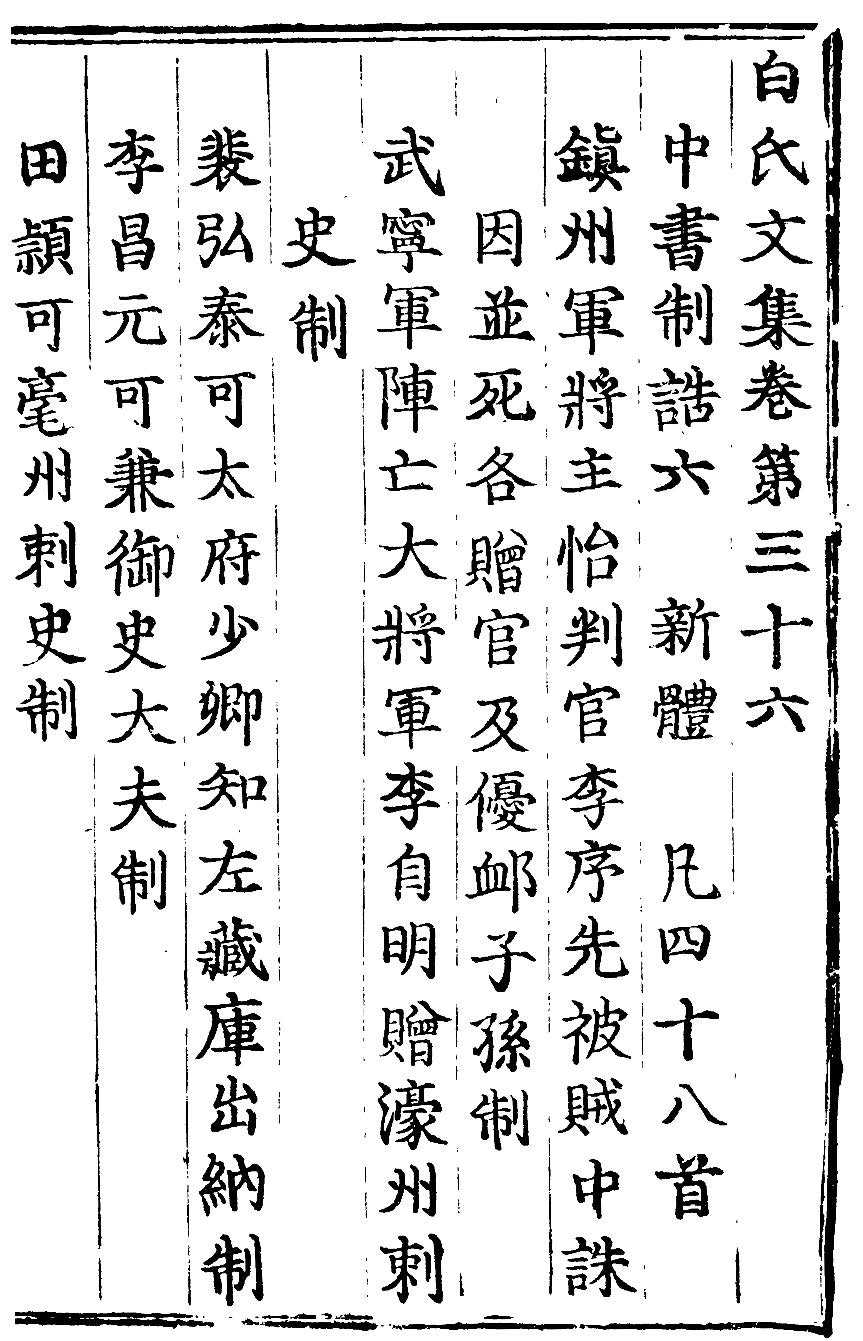 白氏文集卷第三十六
中書制誥六 新體 凡四十八首
鎭州軍將主怡判官李序先被賊中誅
因並死各贈官及優䘏子孫制
武寧軍陣亡大將軍李自明贈濠州刺
史制
裴弘泰可太府少卿知左藏庫出納制
李昌元可兼御史大夫制
田頴可亳州刺史制